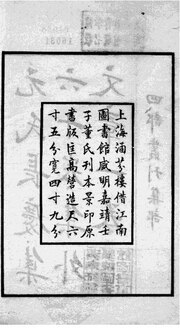 四部叢刊集部
上海涵芬樓借江南
圖書館藏明嘉靖壬
子董氏刊本景印原
書版匡高營造尺六
寸五分寬四寸九分